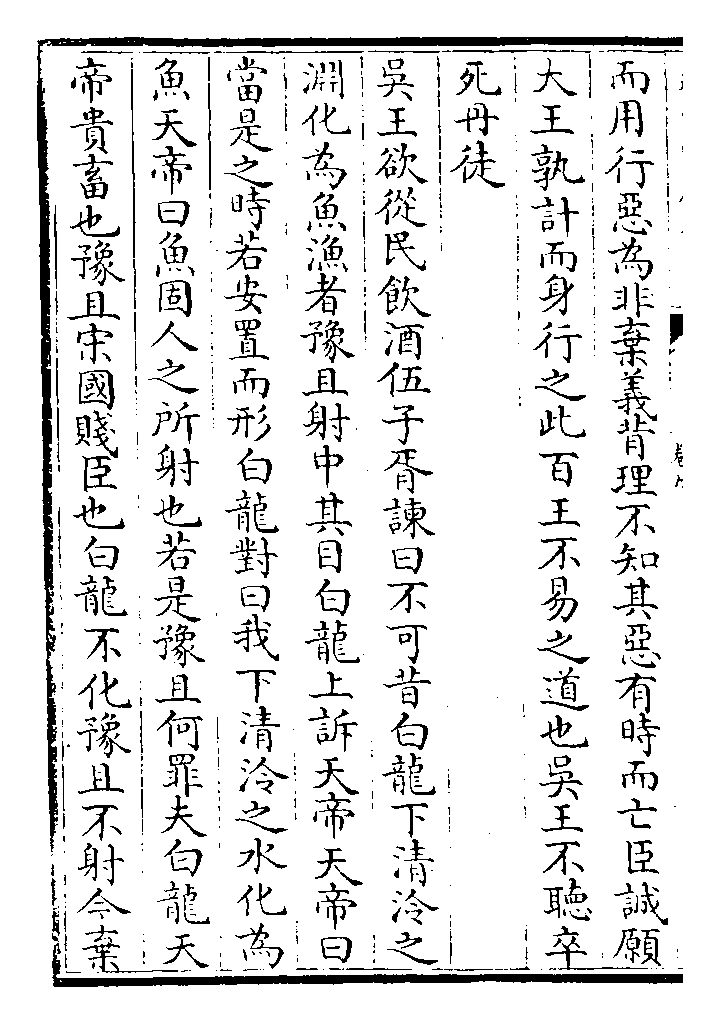 而用行惡為非棄義背理不知其惡有時而亡臣誠願
大王孰計而身行之此百王不易之道也吳王不聽卒
死丹徒
吳王欲從民飲酒伍子胥諫曰不可昔白龍下清泠之
淵化為魚漁者豫且射中其目白龍上訴天帝天帝曰
當是之時若安置而形白龍對曰我下清泠之水化為
魚天帝曰魚固人之所射也若是豫且何罪夫白龍天
帝貴畜也豫且宋國賤臣也白龍不化豫且不射今棄